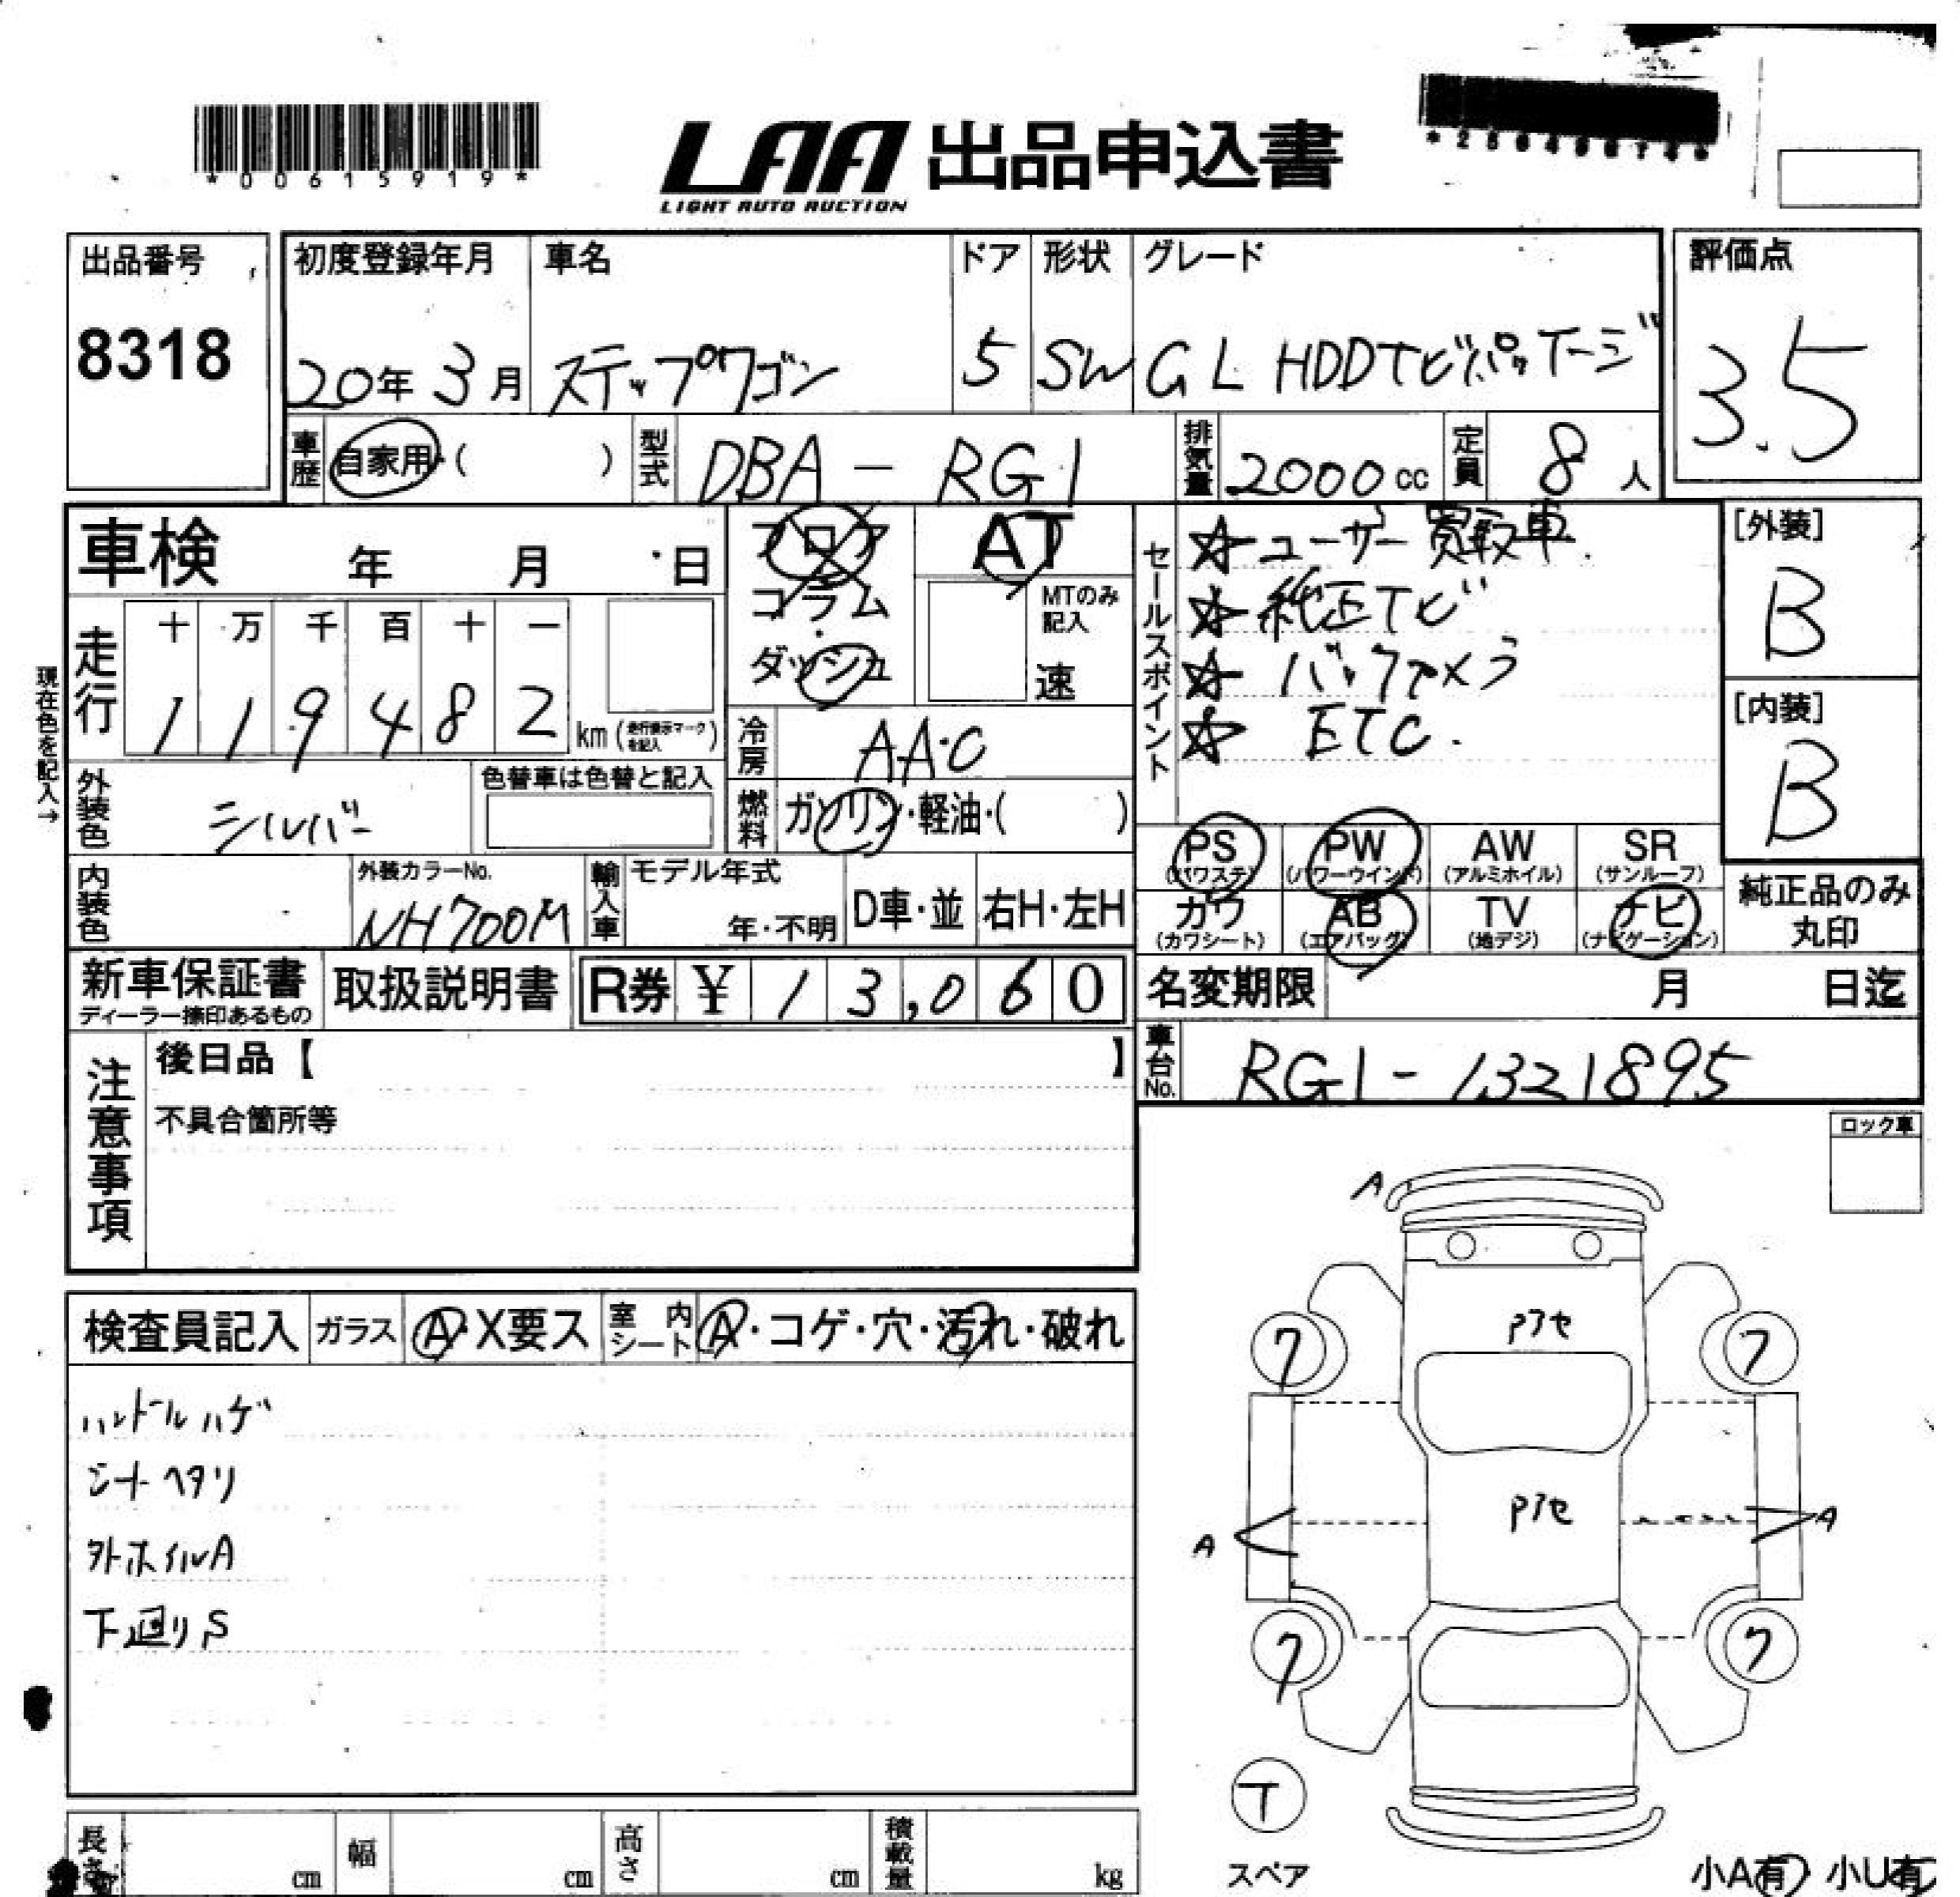 *00615919*
LAA 出品申込書
LIGHT AUTO AUCTION
出品番号
8318
初度登録年月
20年 3月
車名
ステップワゴン
ドア
5
形状
SW
グレード
G L HDDナビパッケージ
評価点
3.5
車歴 自家用・( )
型式 DBA-RG1
排気量 2000cc
定員 8人
車検 年 月 日
フロア・コラム・ダッシュ
AT
MTのみ記入
速
セールスポイント
☆ユーザー買取車.
☆純正ナビ
☆バックカメラ
☆ETC.
[外装]
B
[内装]
B
現在色を記入→
走行
十 万 千 百 十 一
1 1 9 4 8 2 km(走行表示マークを記入)
冷房 AAC
燃料 ガソリン・軽油・( )
外装色 シルバー
色替車は色替と記入
内装色
外装カラーNo.
NH700M
輸入車
モデル年式
年・不明
D車・並
右H・左H
PS (パワステ)
PW (パワーウインド)
AW (アルミホイル)
SR (サンルーフ)
カワ (カワシート)
AB (エアバッグ)
TV (地デジ)
ナビ (ナビゲーション)
純正品のみ丸印
新車保証書
ディーラー捺印あるもの
取扱説明書
R券 ¥ 13,060
名変期限 月 日迄
車台No. RG1-1321895
注意事項
後日品【 】
不具合箇所等
ロック車
検査員記入
ガラス A・X要ス
室内シート A・コゲ・穴・汚れ・破れ
ハンドルハゲ
シートヘタリ
外ホイルA
下廻りS
A
アセ
7 7
アセ
A A
7 7
T
スペア
小A有 小U有
長さ cm
幅 cm
高さ cm
積載量 kg